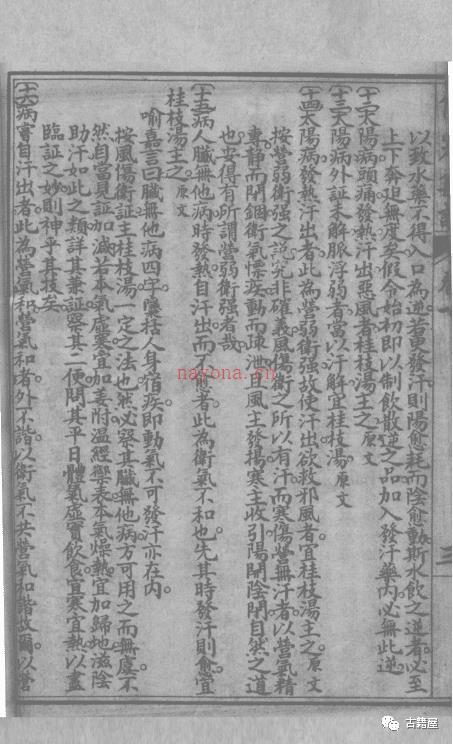 以致水藥不得入口為逆若更發汗則陽愈耗而陰愈動斯水飲之逆者必至
上下奔迫無度矣假令始初即以制飲散逆之品加入發汗藥內必無此逆
〔十二〕太陽病頭痛發熱汗出惡風者桂枝湯主之原文
〔十三〕太陽病外証未解脈浮弱者當以汗解宜桂枝湯原文
〔十四〕太陽病發熱汗出者此為營弱衛強故使汗出欲救邪風者宜桂枝湯主之原文
按營弱衛強之說究非確義風傷衛之所以有汗而寒傷營無汗者以營氣精
專靜而閉錮衛氣慓疾動而疎泄且風主發揚寒主收引陽開陰閉自然之道
也安得有所謂營弱衛強者哉
〔十五〕病人臟無他病時發熱自汗出而不愈者此為衛氣不和也先其時發汗則愈宜
桂枝湯主之原文
喻嘉言曰臟無他病四字櫽括人身宿疾即動氣不可發汗亦在內
按風傷衛証主桂枝湯一定之法也然必察其臟無他病方可用之而無慮不
然自當見証加減若本氣虛寒宜加姜附溫經禦表本氣燥熱宜加歸地滋陰
助汗如此之類詳其兼証察其二便問其平日體氣虛實飲食宜寒宜熱以盡
臨証之妙則神乎其技矣
〔十六〕病嘗自汗出者此為營氣和營氣和者外不諧以衛氣不共營氣和諧故爾以營
nayona.cn
古籍屋